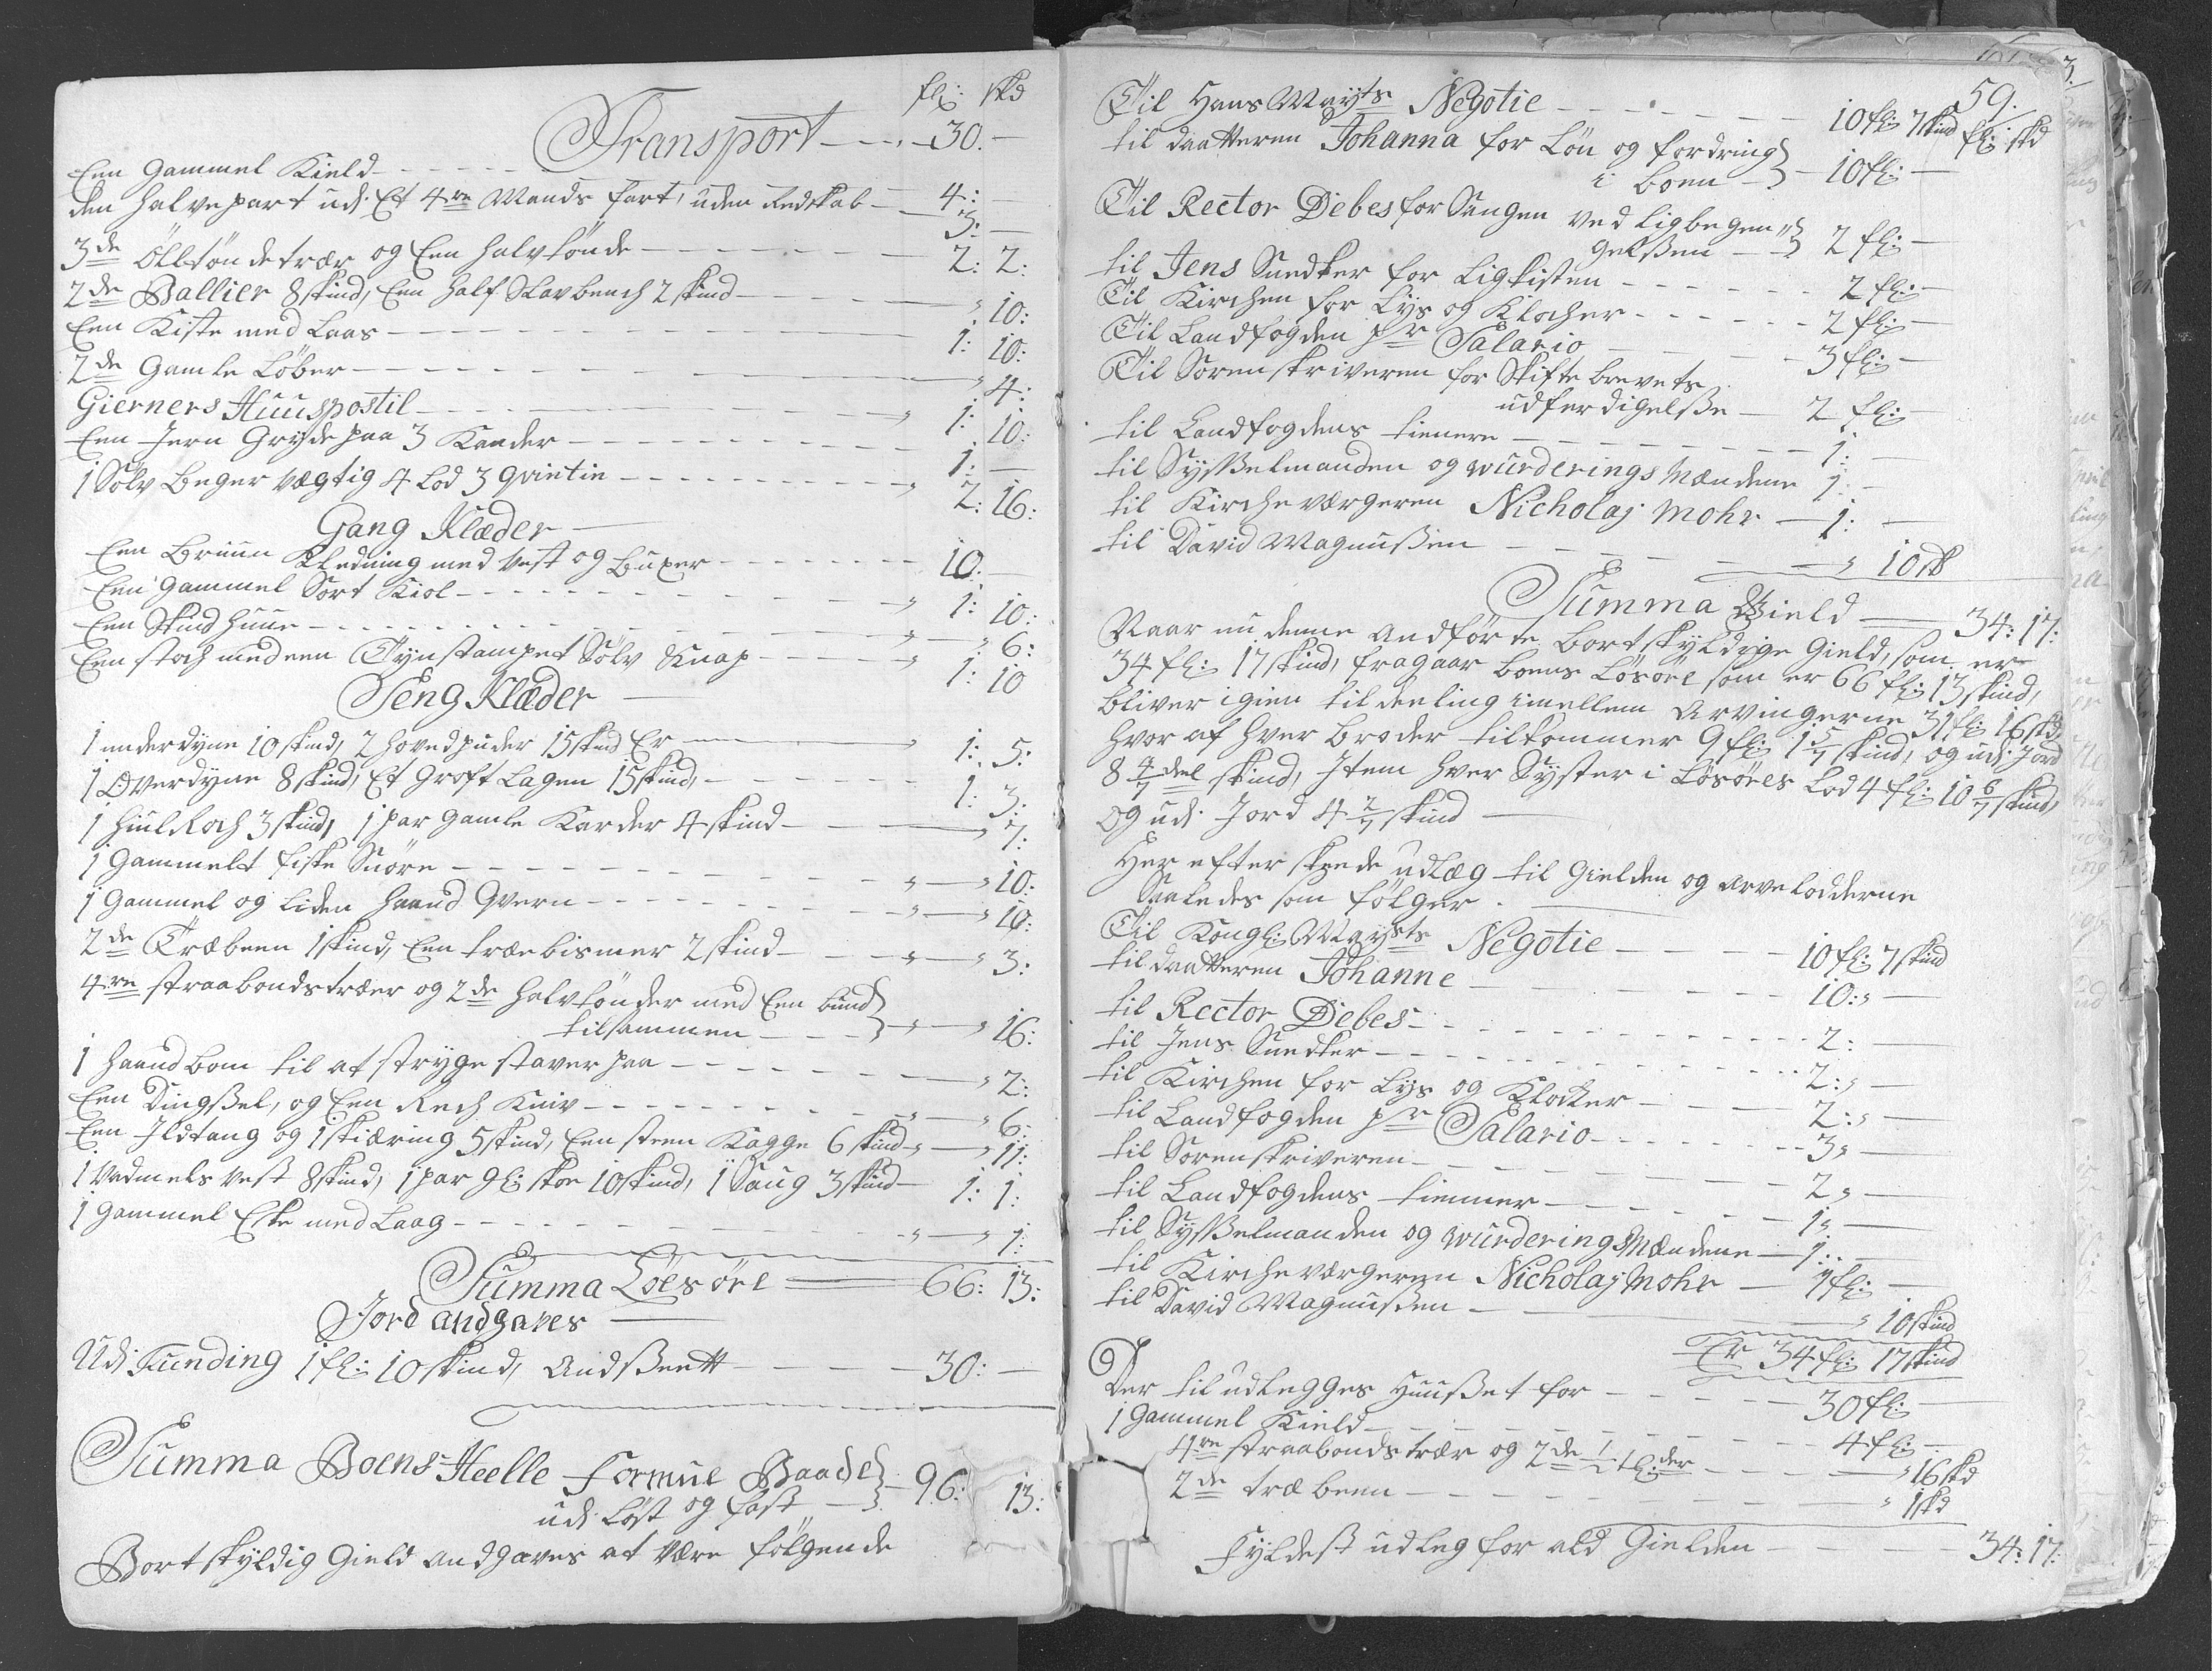 fl: skd
Transport - - - 30. -
Een gammel Kield - - - - - 4: -
den halve part udi Et 4re Mands fart, uden Redskab - 3: -
3de Ölltöndetrær og Een halvtönde - - - - 2: 2:
2de Ballier 8 skind, Een half Slavbench 2 skind - - - " 10:
Een Kiste med Laas - - - - - 1: 10:
2de gamle Löber - - - - - " 4:
Gierners Huuspostil - - - - - 1: 10:
Een Jern Gryde paa 3 Kander - - - - - 1: -
1 Sölv Beger vægtig 4 Lod 3 qvintin - - - - 2: 16:
Gang Klæder -
Een Bruun Kledning med Vest og Buxer - - - - 10. -
Een gammel Sort Kiol - - - - - 1: 10:
Een Skind huue - - - - - " 6:
Een stoch med een Tynstampet Sölv Knap - - - 1: 10
Seng Klæder -
1 underdyne 10 skind, 2 hovedpuder 15 skind Er - 1: 5:
1 Overdyne 8 skind, Et groft Lagen 15 skind, - - - 1: 3:
1 Huil Roch 3 skind, 1 par gamle Karder 4 skind - - " 7:
1 gammelt fiske Snöre - - - - - " 10:
1 gammel og liden haand Qvern - - - - " 10:
2de Træbeen 1 skind, Een træebismer 2 skind - - " 3:
4re straabondstræer og 2de halvtönder med Een bund
tilsammen - - - " 16:
1 haand bom til at stryge staver paa - - - - " 2:
Een Dingßel, og Een Rech Kniv - - - - " 6:
Een Ildtang og 1 skiæring 5 skind, Een steen Kagge 6 skind - " 11:
1 Vadmels vest 8 skind, 1 par gl: skoe 10 skind, 1 Saug 3 skind - 1: 1:
1 gammel Eske med Laag - - - - - " 1:
Summa Löesöre 66: 13:
Jord andgaves -
Udi Funding 1 fl: 10 skind, Andßeett - - - 30: -
Summa Boens Heelle Formue Baade
udi Löst og fast - 96: 13:
Bortskyldig Gield andgaves at være fölgende
59.
fl: skd
Til Hans Mayts Negotie - - - - - 10 fl: 7 skind
til daatteren Johanna for Lön og fordring
i boen - 10 fl: -
Til Rector Debes for Sangen ved Ligbegen"
gelßen - 2 fl: -
til Jens Snedker for Ligkisten - - - - 2 fl: -
Til Kirchen for Lys og Klocher - - - - 2 fl: -
Til Landfogden pr Salario - - - - 3 fl: -
Til Sorenskriveren for Skifte brevets
udferdigelße - 2 fl:
til Landfogdens tienere - - - - 1: -
til Sysßelmanden og wurderings Mændene 1 -
til Kirche værgeren Nicholaj Mohr - 1: -
til David Magnußen - - - - " 10 sk
Summa Gield - 34: 17:
Naar nu denne andförte bortskyldige Gield, som er
34 fl: 17 skind, fragaar boens Lösöre som er 66 fl: 13 skind,
bliver igien til deeling imellem Arvingerne 31 fl: 16 skd,
hvor af hver broder tilkommer 9 fl: 1 5/7 skind, og udi Jord
8 4/7 deel skind, Item hver Syster i Lösöres Lod 4 fl: 10 6/7 skind,
og udi Jord 4 2/7 skind -
Her efter skeede udlæg til Gielden og arvelodderne
Saaledes som fölger. -
Til Kongl: Mayts Negotie - - - - 10 fl: 7 skind
til daatteren Johanne - - - - 10: " -
til Rector Debes - - - - - 2: -
til Jens Snedker - - - - - 2: " -
til Kirchen for Lys og Klocker - - - 2: " -
til Landfogden pr Salario - - - - 3 " -
til Sorenskriveren - - - - - 2 " -
til Landfogdens tienner - - - - 1 " -
til Sysßelmanden og wurderings Mændene - 1: -
til Kirche værgeren Nicholaj Mohr - 1 fl: -
til David Magnußen - - - " 10 skind
Er 34 fl: 17 skind
Der til udlegges Huußet for - - - 30 fl: -
1 gammel Kield - - - - - 4 fl: -
4re straabondstrær og 2de 1/2 t:der - - - " 16 skd
2de træbeen - - - - - " 1 skd
Fyldest udleg for ald Gielden - - - 34: 17: